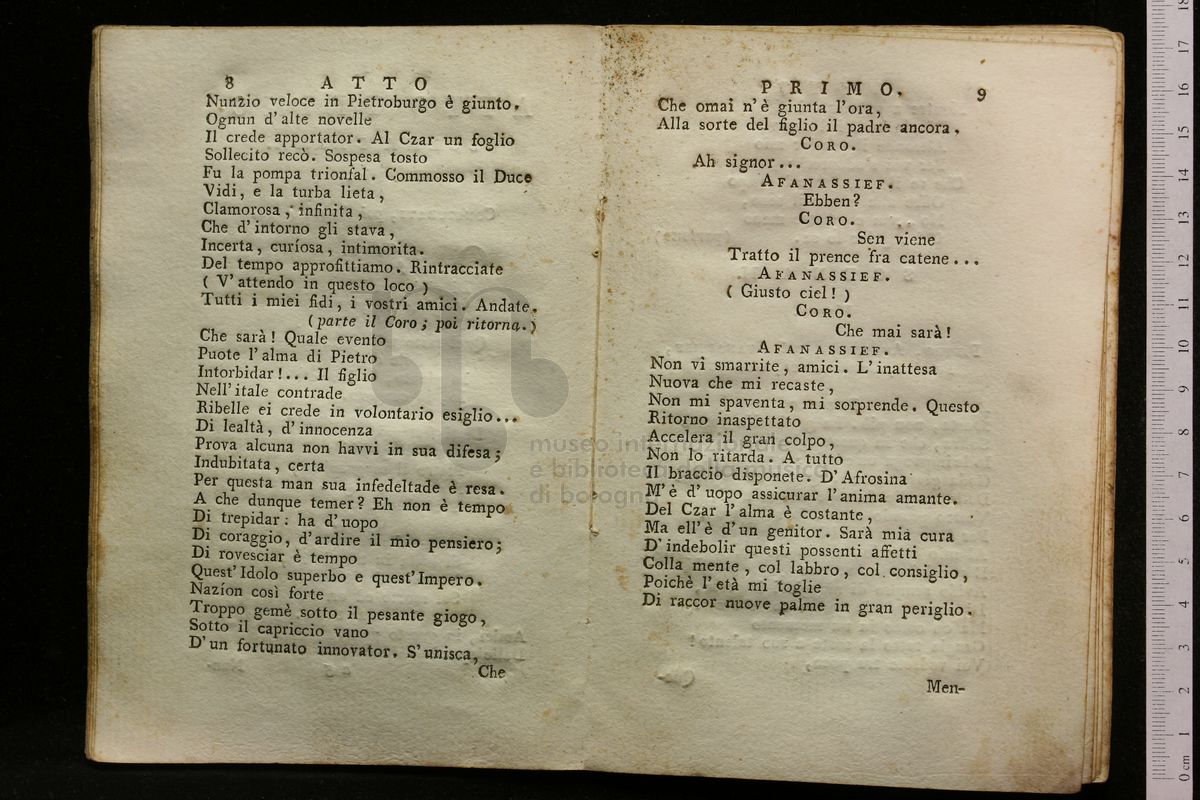 8 ATTO
Nunzio veloce in Pietroburgo è giunto.
Ognun d'alte novelle
Il crede apportator. Al Czar un foglio
Sollecito recò. Sospesa tosto
Fu la pompa trionfal. Commosso il Duce
Vidi, e la turba lieta,
Clamorosa, infinita,
Che d'intorno gli stava,
Incerta, curiosa, intimorita.
Del tempo approfittiamo. Rintracciate
( V'attendo in questo loco )
Tutti i miei fidi, i vostri amici. Andate.
(parte il Coro; poi ritorna.)
Che sarà! Quale evento
Puote l'alma di Pietro
Intorbidar!... Il figlio
Nell'itale contrade
Ribelle ei crede in volontario esiglio...
Di lealtà, d'innocenza
Prova alcuna non havvi in sua difesa;
Indubitata, certa
Per questa man sua infedeltade è resa.
A che dunque temer? Eh non è tempo
Di trepidar: ha d'uopo
Di coraggio, d'ardire il mio pensiero;
Di rovesciar è tempo
Quest'Idolo superbo e quest'Impero.
Nazíon così forte
Troppo gemè sotto il pesante giogo,
Sotto il capriccio vano
D'un fortunato innovator. S'unisca,
Che
PRIMO. 9
Che omai n'è giunta l'ora,
Alla sorte del figlio il padre ancora.
CORO.
Ah signor...
AFANASSIEF.
Ebben?
CORO.
Sen viene
Tratto il prence fra catene...
AFANASSIEF.
( Giusto ciel! )
CORO.
Che mai sarà!
AFANASSIEF.
Non vi smarrite, amici. L'inattesa
Nuova che mi recaste,
Non mi spaventa, mi sorprende. Questo
Ritorno inaspettato
Accelera il gran colpo,
Non lo ritarda. A tutto
Il braccio disponete. D'Afrosina
M'è d'uopo assicurar l'anima amante.
Del Czar l'alma è costante,
Ma ell'è d'un genitor. Sarà mia cura
D'indebolir questi possenti affetti
Colla mente, col labbro, col consiglio,
Poichè l'età mi toglie
Di raccor nuove palme in gran periglio.
Men-
museo internazionale
e biblioteca della musica
di bologna
0 cm 1 2 3 4 5 6 7 8 9 10 11 12 13 14 15 16 17 18